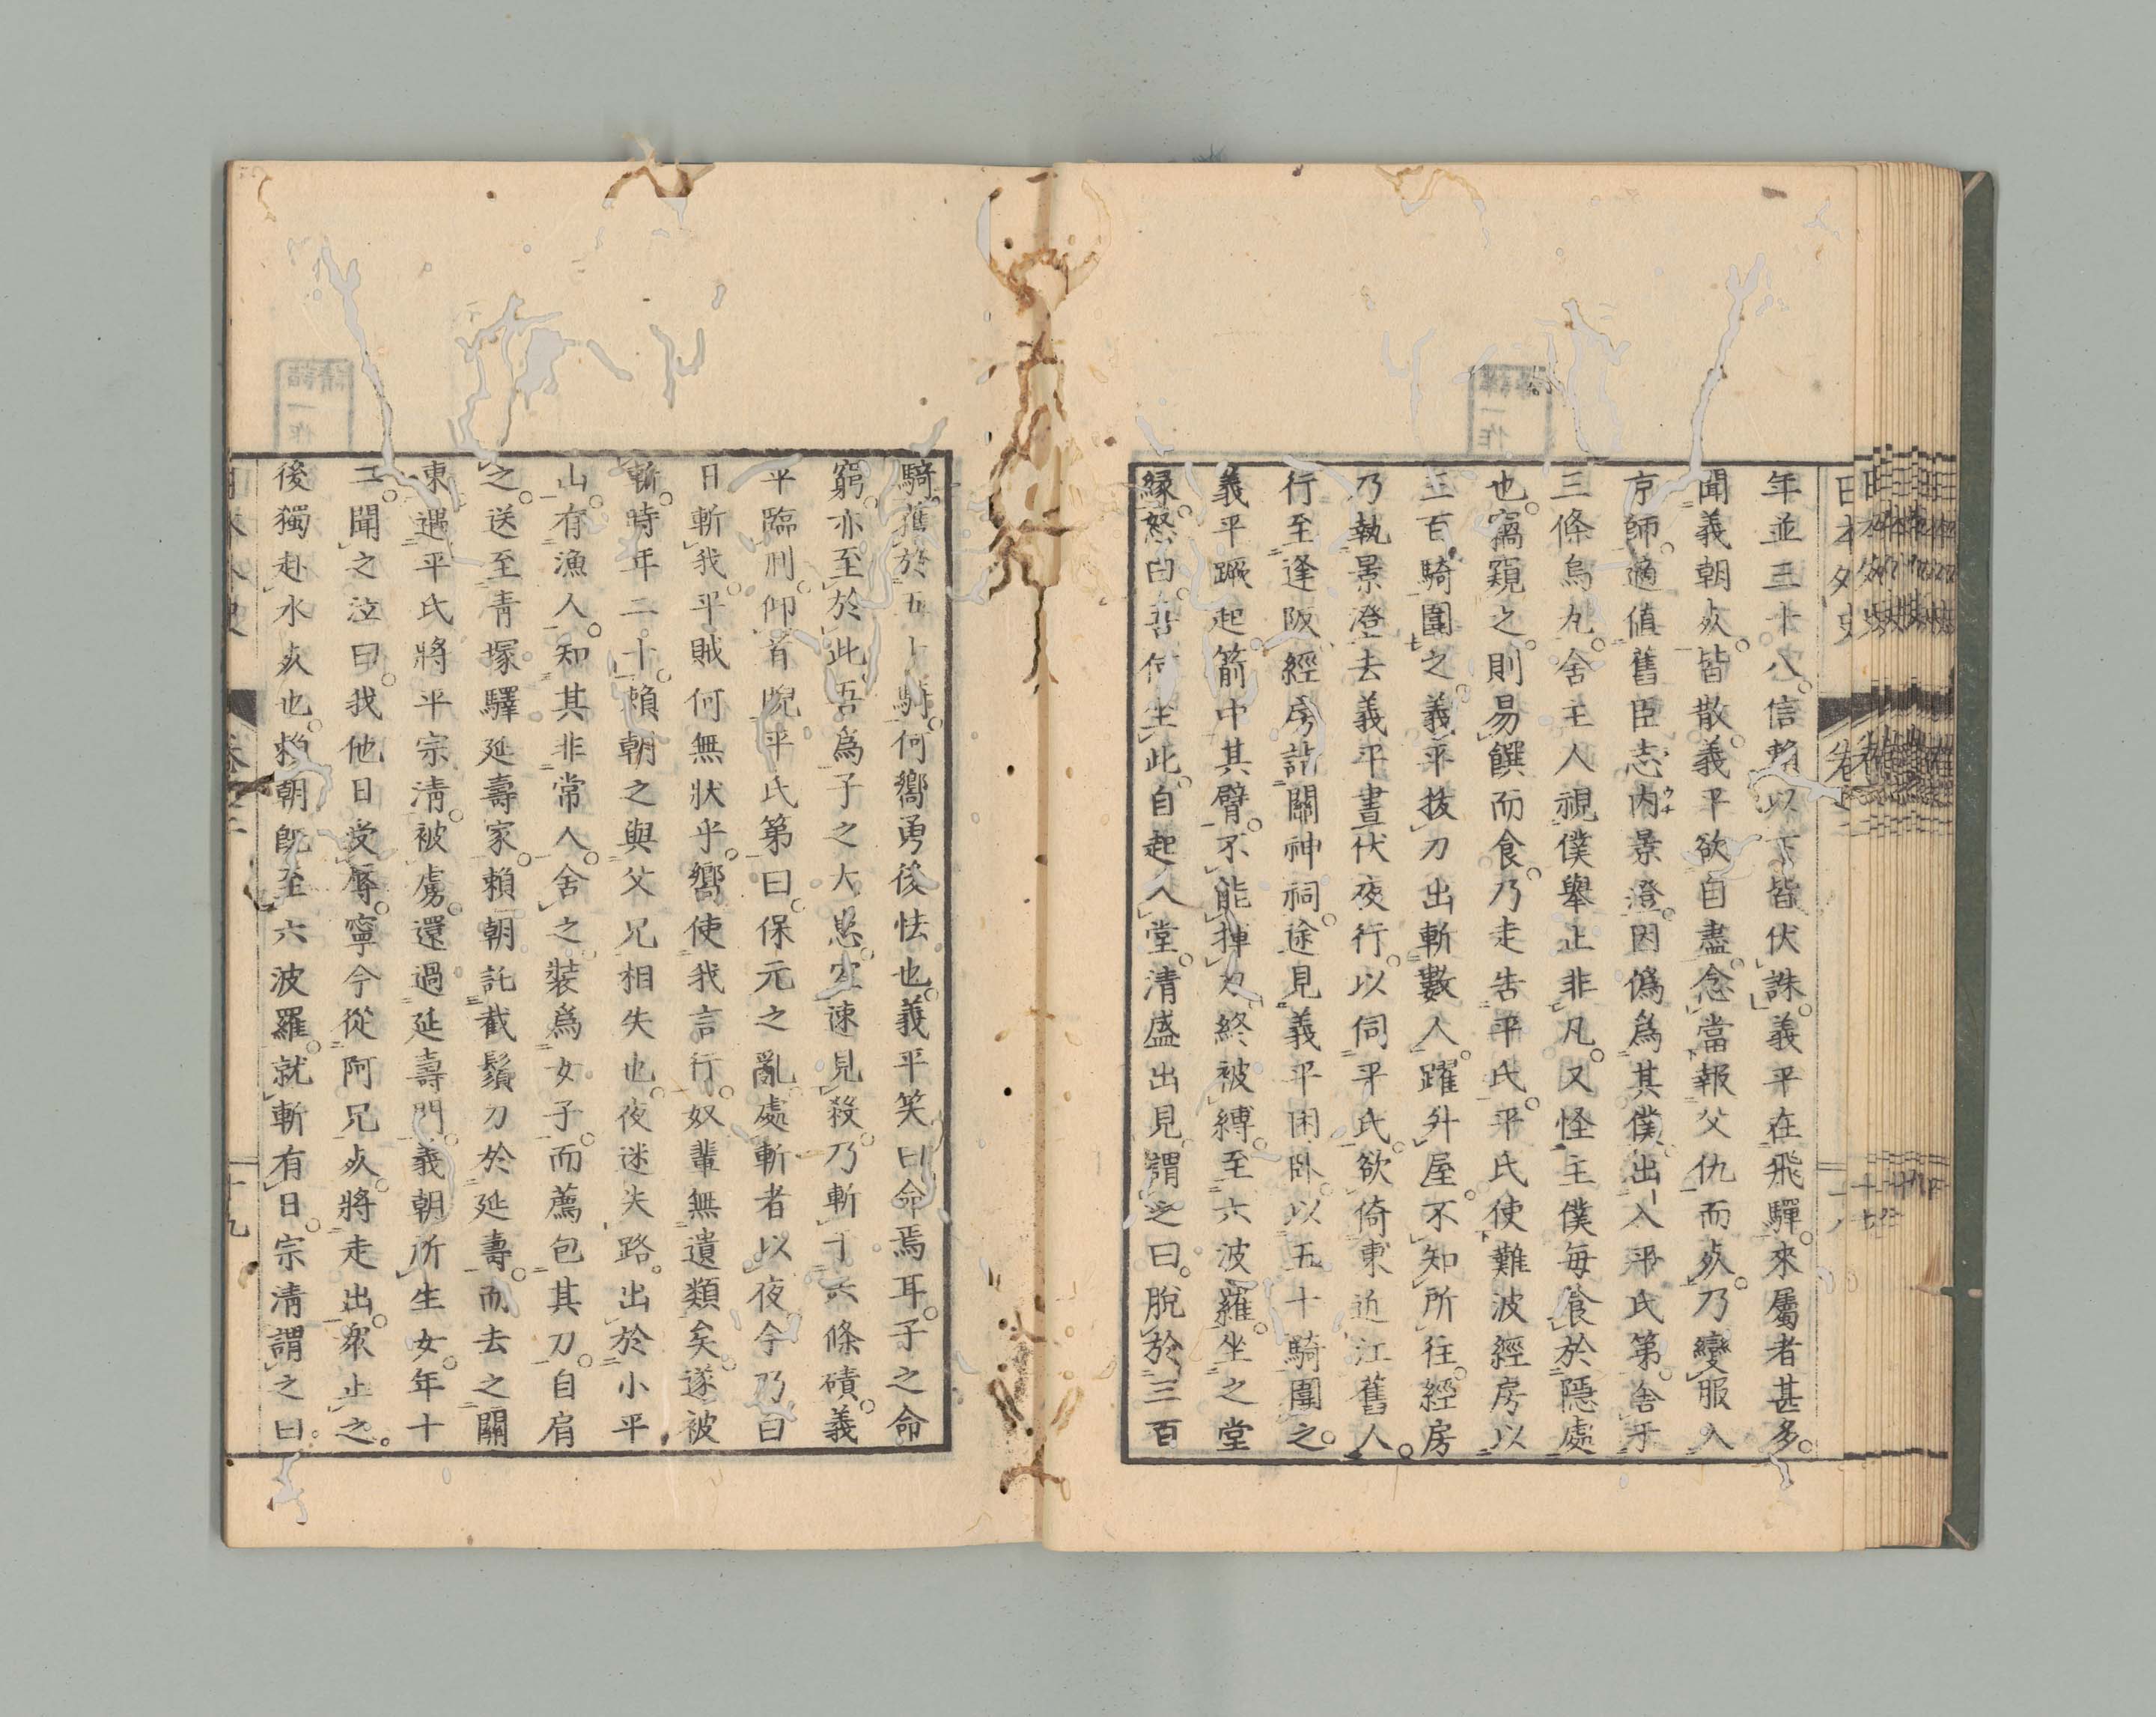 年並三十八。信賴以下皆伏誅。義平在飛驒。來屬者甚多。
聞義朝死。皆散。義平欲自盡。念當報父仇而死。乃變服入
京師。適値舊臣志内景澄。因僞爲其僕。出入平氏第。舎于
三條烏丸。舍主人視僕擧止非凡。又怪主僕毎食於隱處
也。窩窺之。則易饌而食。乃走告平氏。平氏使難波經房以
三百騎圍之。義平拔刀出斬數人。躍升屋。不知所往。經房
乃執景澄去。義平晝伏夜行。以伺平氏。欲倚東近江舊人。
行至逢阪。經房詣關神祠。途見義平困臥。以五十騎圍之。
義平蹶起。箭中其臂。不能揮刀。終被縛。至六波羅。坐之堂
緣。怒曰。吾何坐此。自起入堂。清盛出見。謂之曰。脫於三百
騎。獲於五十騎。何嚮勇後怯也。義平笑曰。命焉耳。子之命
窮。亦至於此。吾爲子之大患。宜速見殺。乃斬于六條磧。義
平臨刑。仰首睨平氏第曰。保元之亂。處斬者以夜。今乃白
日斬我。平賊何無狀乎。嚮使我言行。奴輩無遺類矣。遂被
斬。時年二十。賴朝之與父兄相失也。夜迷失路。出於小平
山。有漁人。知其非常人。舍之。裝爲女子。而薦包其刀。自肩
之。送至青塚驛延壽家。賴朝託截鬚刀於延壽。而去之關
東。遇平氏將平宗清。被虜。還過延壽門。義朝所生女。年十
二。聞之泣曰。我他日受辱。寧今從阿兄死。將走出。衆止之。
後獨赴水死也。賴朝既至六波羅。就斬有日。宗清謂之曰。